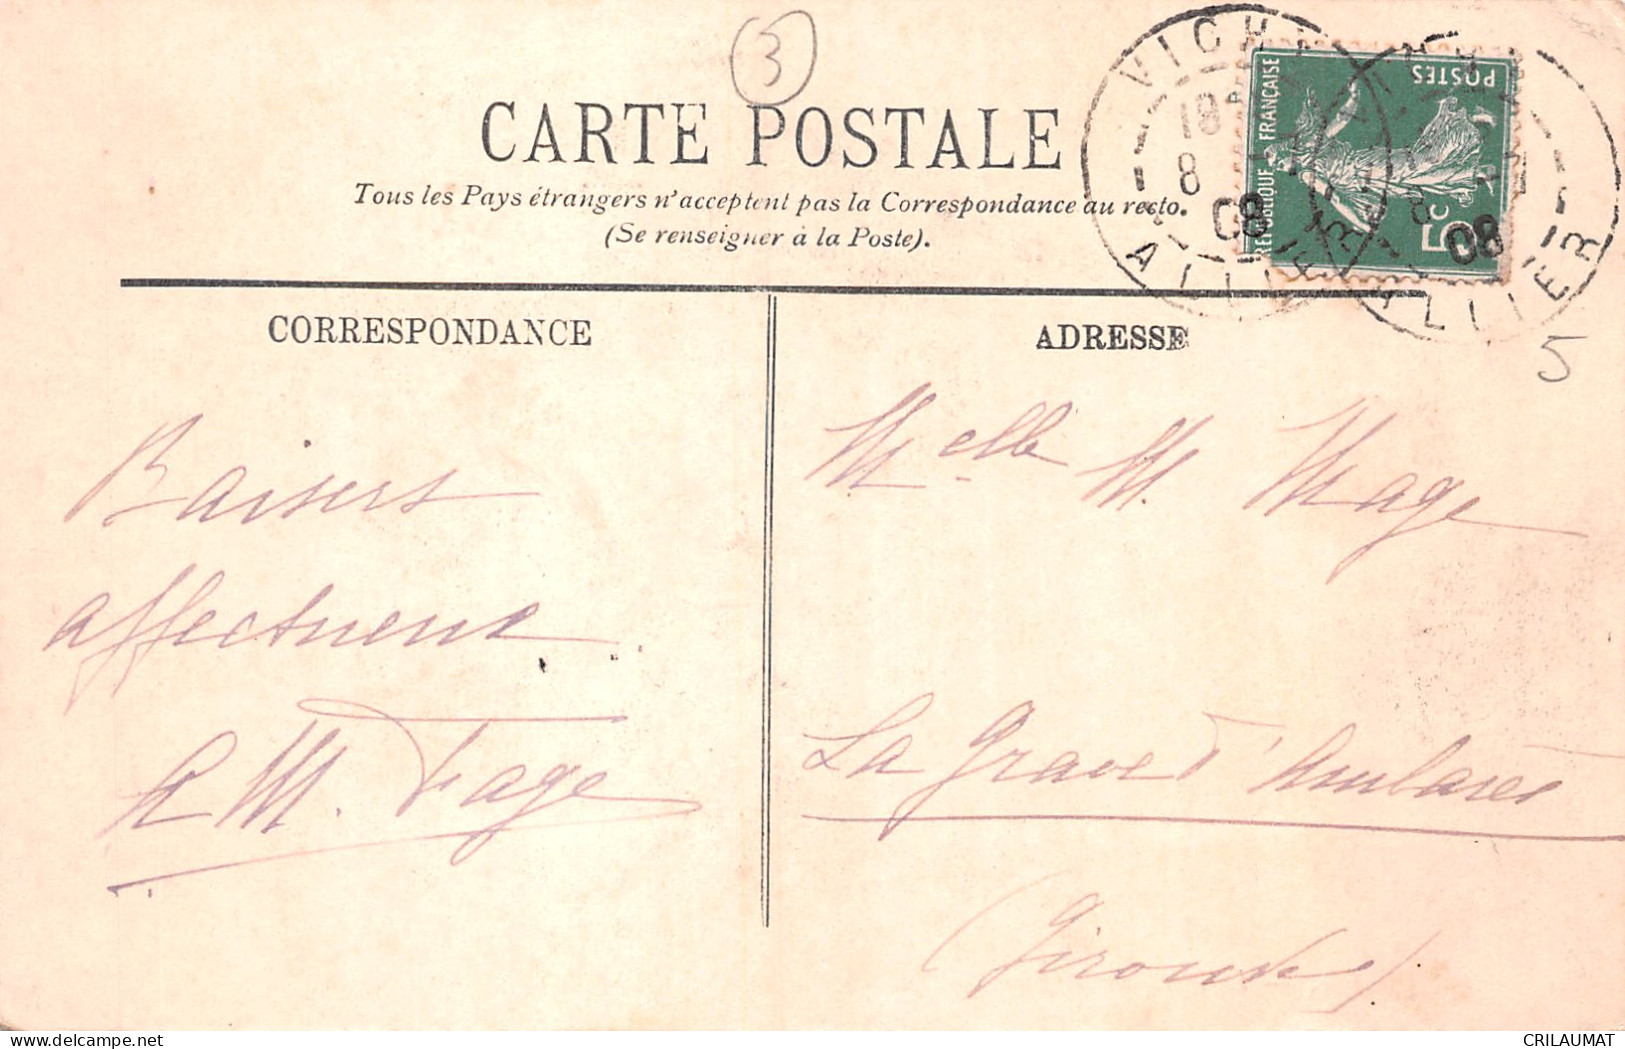 3
CARTE POSTALE
Tous les Pays étrangers n'acceptent pas la Correspondance au recto.
(Se renseigner à la Poste).
VICHY
18
8
08
ALLIER
08
ALLIER
RÉPUBLIQUE FRANÇAISE
POSTES
5c
5
CORRESPONDANCE
Baisers
affectueux
M. Fage
ADRESSE
Melle M. Mage
La Grave d'Ambarès
(Gironde)
CRILAUMAT